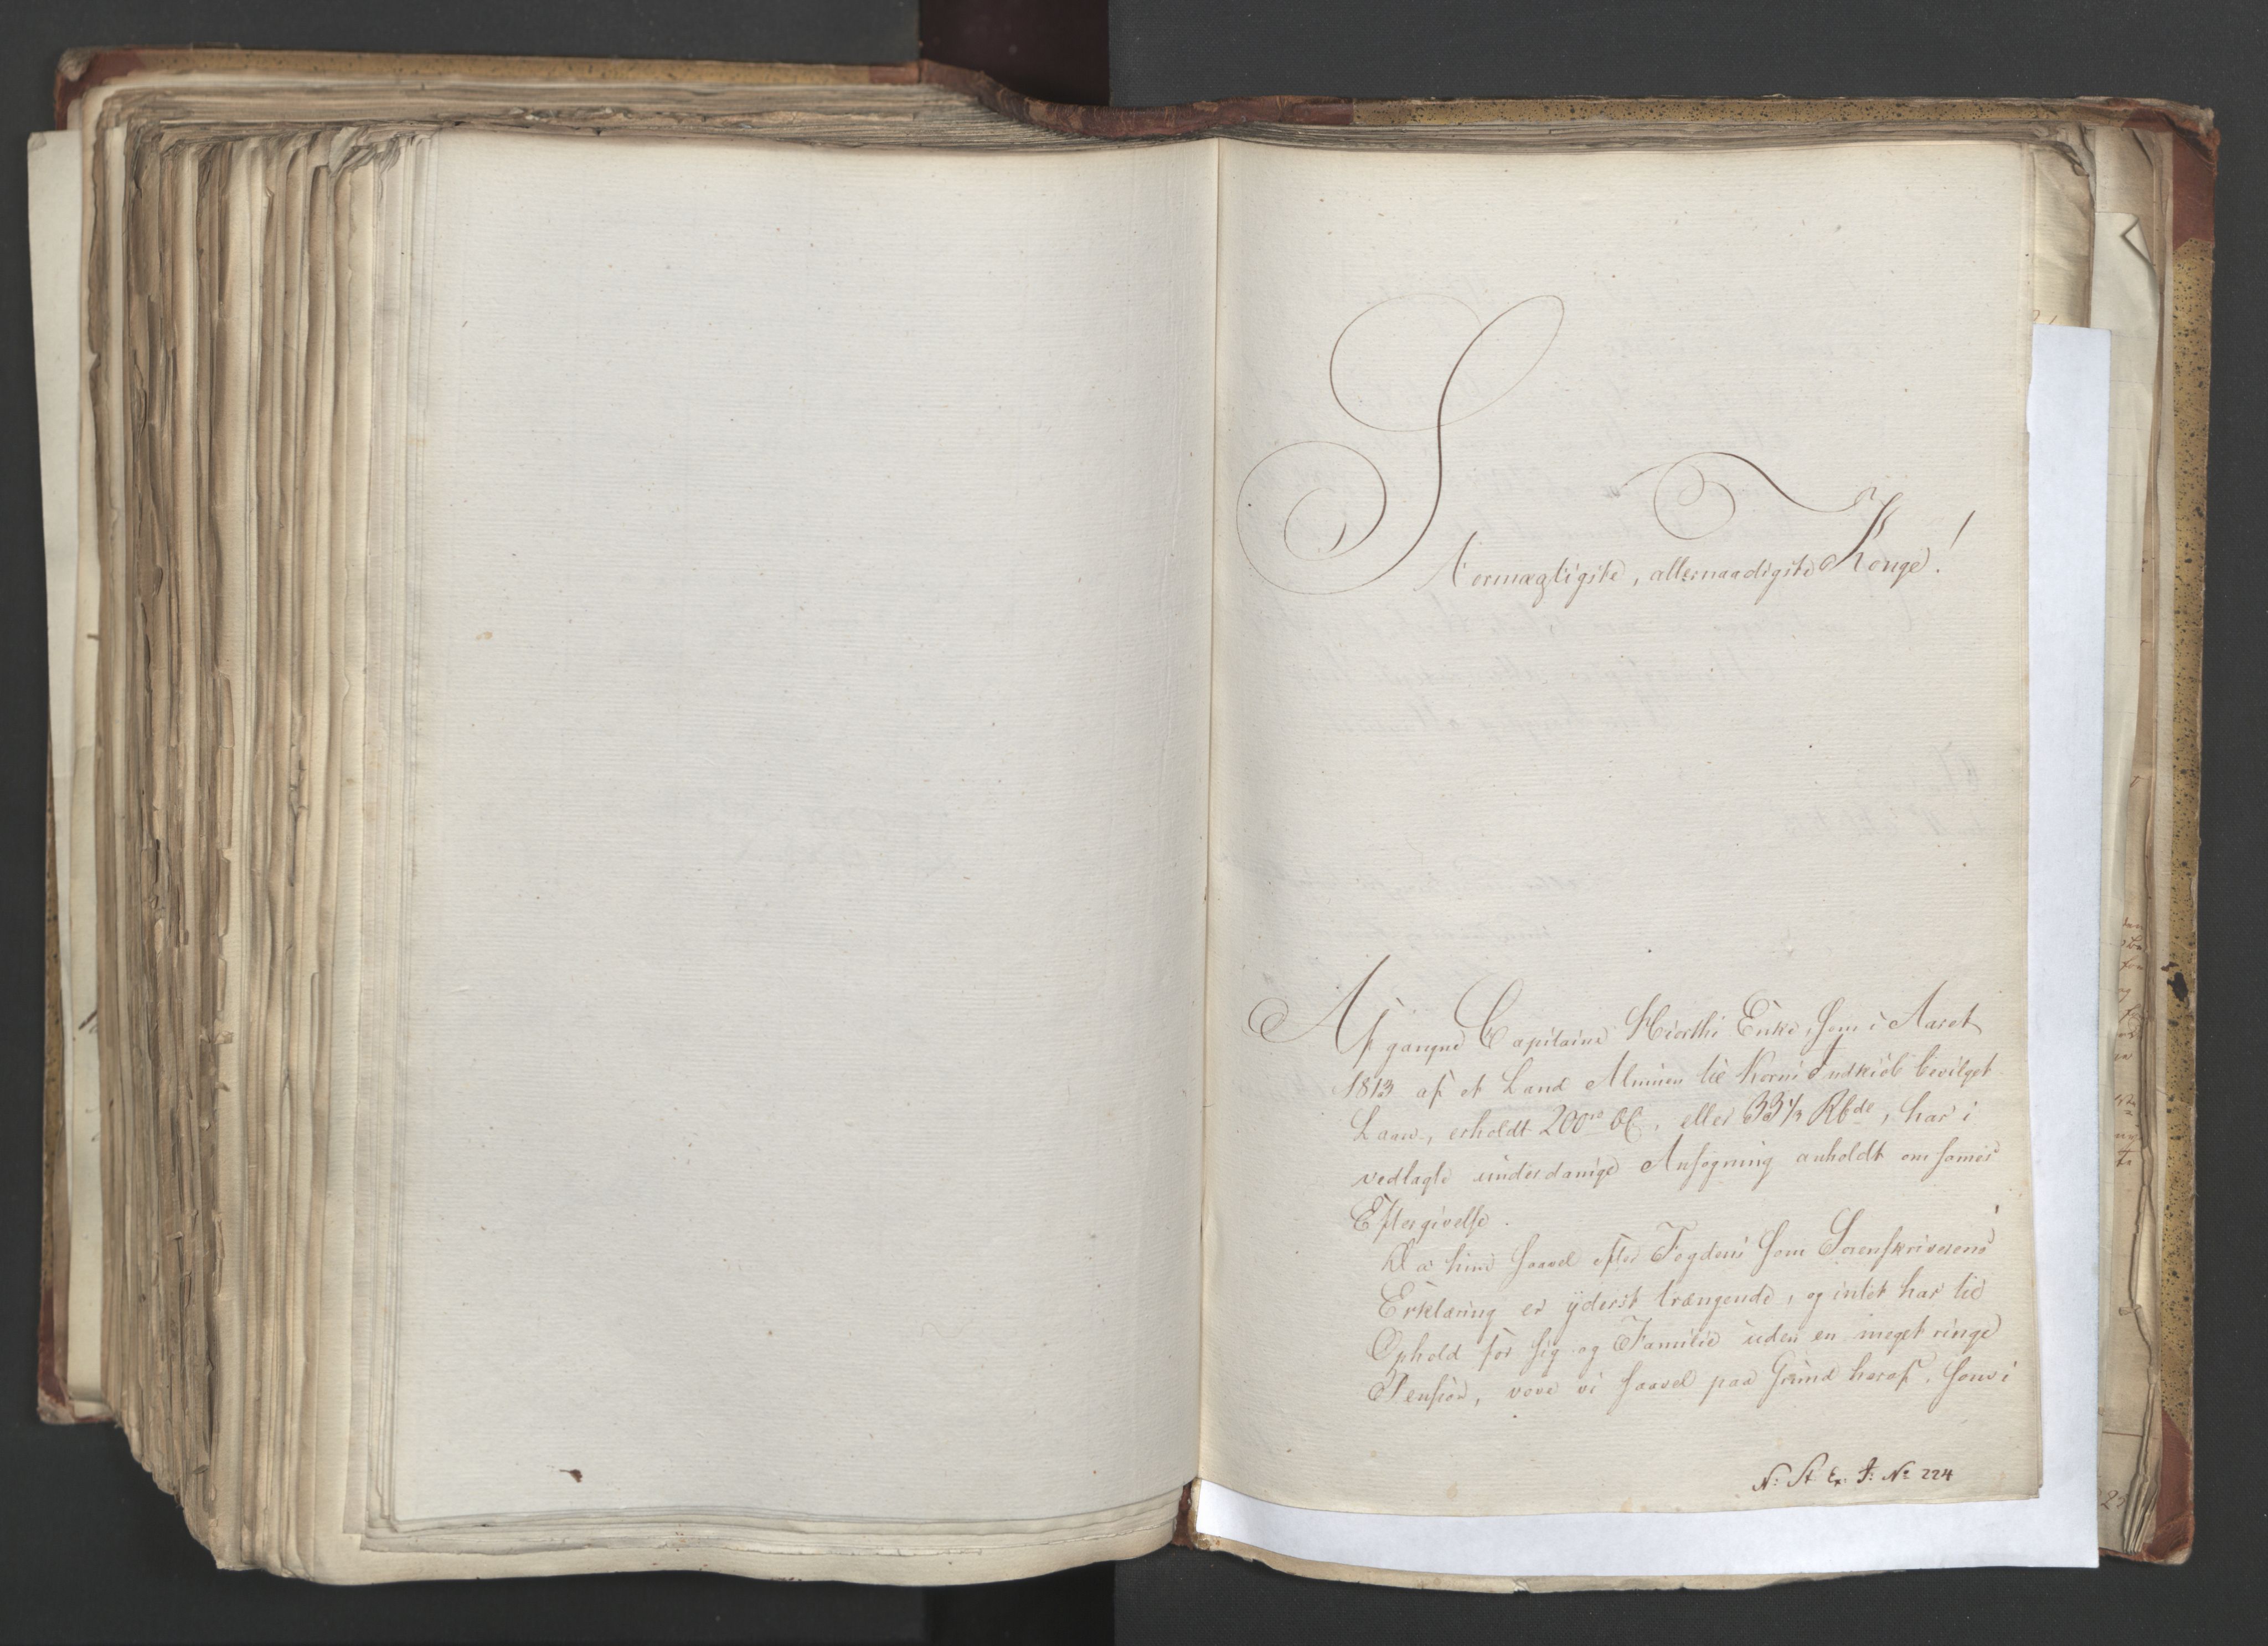 Stormægtigste, allernaadigste Konge!
Afgangne Capitaine Hiorths Enke, som i Aaret
1813 af et Land Almuen til Korns Indkiøb bevilget
Laan, erholdt 200 rd DC, eller 33 1/3 Rbdr, har i
vedlagte underdanige Ansøgning anholdt om sammes
Eftergivelse.
Da hun saavel efter Fogdens som Sorenskriverens
Erklæring er yderst trængende, og intet har til
Ophold for sig og Familie uden en meget ringe
Pension, vove vi saavel paa Grund heraf, som i
N: St Ex: J: No 224